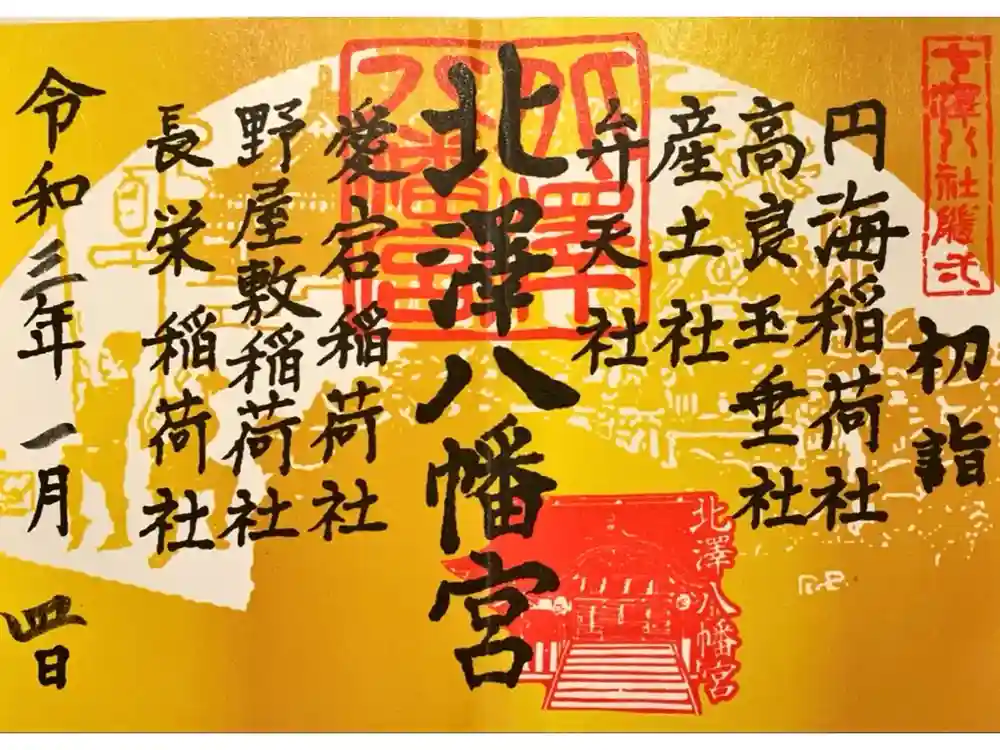 七澤八社随弌
初詣
円海稲荷社
高良玉垂社
産土社
弁天社
北澤八幡宮
北澤
八幡宮
北澤八幡宮
愛宕稲荷社
野屋敷稲荷社
長栄稲荷社
令和三年一月四日